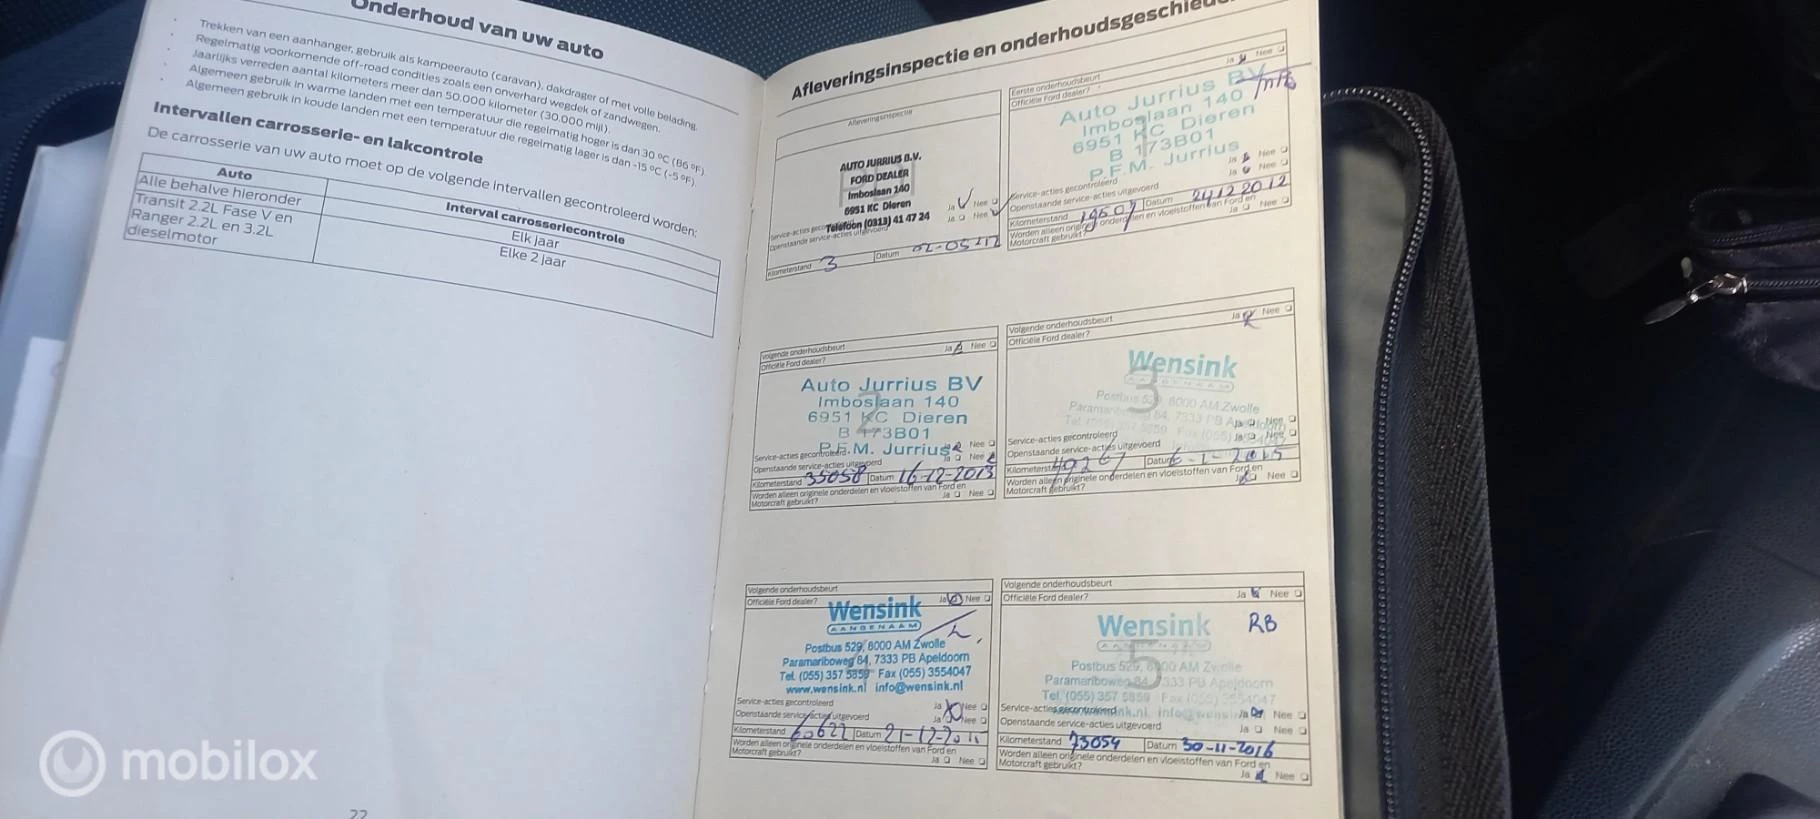 Onderhoud van uw auto
Trekken van een aanhanger, gebruik als kampeerauto (caravan), dakdrager of met volle belading.
Regelmatig voorkomende off-road condities zoals een onverhard wegdek of zandwegen.
Jaarlijks verreden aantal kilometers meer dan 50.000 kilometer (30.000 mijl).
Algemeen gebruik in warme landen met een temperatuur die regelmatig hoger is dan 30 °C (86 °F).
Algemeen gebruik in koude landen met een temperatuur die regelmatig lager is dan -15 °C (-5 °F).
Intervallen carrosserie- en lakcontrole
De carrosserie van uw auto moet op de volgende intervallen gecontroleerd worden:
Auto
Interval carrosseriecontrole
Alle behalve hieronder
Elk jaar
Transit 2.2L Fase V en
Ranger 2.2L en 3.2L
dieselmotor
Elke 2 jaar
22
Afleveringsinspectie en onderhoudsgeschied
Afleveringsinspectie
AUTO JURRIUS B.V.
FORD DEALER
Imboslaan 140
6951 KC Dieren
Telefoon (0313) 41 47 24
Ja Nee
Ja Nee
Kilometerstand 3 Datum 02-05-12
Eerste onderhoudsbeurt
Officiële Ford dealer? Ja Nee
Auto Jurrius BV
Imboslaan 140
6951 KC Dieren
B 173B01
P.F.M. Jurrius
Service-acties gecontroleerd Ja Nee
Openstaande service-acties uitgevoerd Ja Nee
Kilometerstand 19507 Datum 24 12 2012
Worden alleen originele onderdelen en vloeistoffen van Ford en
Motorcraft gebruikt? Ja Nee
Volgende onderhoudsbeurt
Officiële Ford dealer? Ja Nee
Auto Jurrius BV
Imboslaan 140
6951 KC Dieren
2
B 173B01
P.F.M. Jurrius
Service-acties gecontroleerd Ja Nee
Openstaande service-acties uitgevoerd Ja Nee
Kilometerstand 35058 Datum 16-12-2013
Worden alleen originele onderdelen en vloeistoffen van Ford en
Motorcraft gebruikt? Ja Nee
Volgende onderhoudsbeurt
Officiële Ford dealer? Ja Nee
Wensink
AANGENAAM
3
Postbus 529, 8000 AM Zwolle
Paramariboweg 84, 7333 PB Apeldoorn
Tel. (055) 357 5859 Fax (055)
Service-acties gecontroleerd Ja Nee
Openstaande service-acties uitgevoerd Ja Nee
Kilometerstand 49267 Datum 6-1-2015
Worden alleen originele onderdelen en vloeistoffen van Ford en
Motorcraft gebruikt? Ja Nee
Volgende onderhoudsbeurt
Officiële Ford dealer? Ja Nee
Wensink
AANGENAAM
Postbus 529, 8000 AM Zwolle
Paramariboweg 84, 7333 PB Apeldoorn
Tel. (055) 357 5859 Fax (055) 3554047
www.wensink.nl info@wensink.nl
Service-acties gecontroleerd Ja Nee
Openstaande service-acties uitgevoerd Ja Nee
Kilometerstand 60622 Datum
Worden alleen originele onderdelen en vloeistoffen van Ford en
Motorcraft gebruikt? Ja Nee
Volgende onderhoudsbeurt
Officiële Ford dealer? Ja Nee
Wensink RB
AANGENAAM
5
Postbus 529, 8000 AM Zwolle
Paramariboweg 84, 7333 PB Apeldoorn
Tel. (055) 357 5859 Fax (055) 3554047
Service-acties gecontroleerd Ja Nee
Openstaande service-acties uitgevoerd Ja Nee
Kilometerstand 73054 Datum 30-11-2016
Worden alleen originele onderdelen en vloeistoffen van Ford en
Motorcraft gebruikt? Ja Nee
mobilox